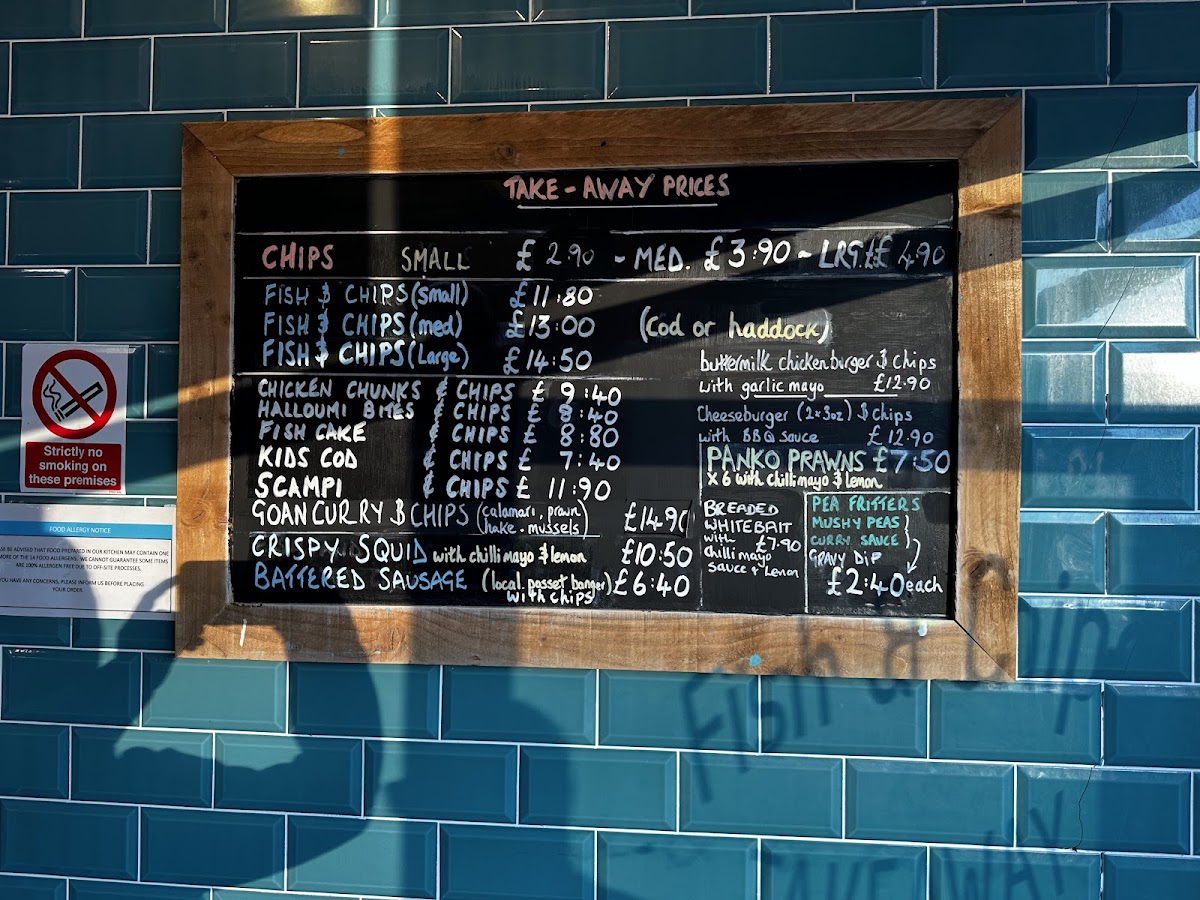 TAKE-AWAY PRICES
CHIPS SMALL £2.90 - MED. £3.90 ~ LRG. ££ 4.90
FISH & CHIPS (small) £11.80
FISH & CHIPS (med) £13.00
FISH & CHIPS (Large) £14.50
(Cod or haddock)
CHICKEN CHUNKS & CHIPS £9.40
HALLOUMI BITES & CHIPS £8.40
FISH CAKE & CHIPS £8.80
KIDS COD & CHIPS £7.40
SCAMPI & CHIPS £11.90
GOAN CURRY & CHIPS (calamari, prawn £14.90
hake - mussels)
CRISPY SQUID with chilli mayo & lemon £10.50
BATTERED SAUSAGE (local posset banger) £6.40
with chips
buttermilk chicken burger & chips
with garlic mayo £12.90
Cheeseburger (2x3oz) & chips
with BBQ sauce £12.90
PANKO PRAWNS £7.50
X 6 with chilli mayo & lemon
BREADED
WHITEBAIT
with £7.90
chilli mayo
sauce + lemon
PEA FRITTERS
MUSHY PEAS
CURRY SAUCE
GRAVY DIP
£2.40 each
Strictly no
smoking on
these premises
FOOD ALLERGY NOTICE
BE ADVISED THAT FOOD PREPARED IN OUR KITCHEN MAY CONTAIN ONE
MORE OF THE 14 FOOD ALLERGENS. WE CANNOT GUARANTEE SOME ITEMS
ARE 100% ALLERGEN FREE DUE TO OFF-SITE PROCESSES.
YOU HAVE ANY CONCERNS, PLEASE INFORM US BEFORE PLACING
YOUR ORDER.
Fish & Chip
TAKE AWAY